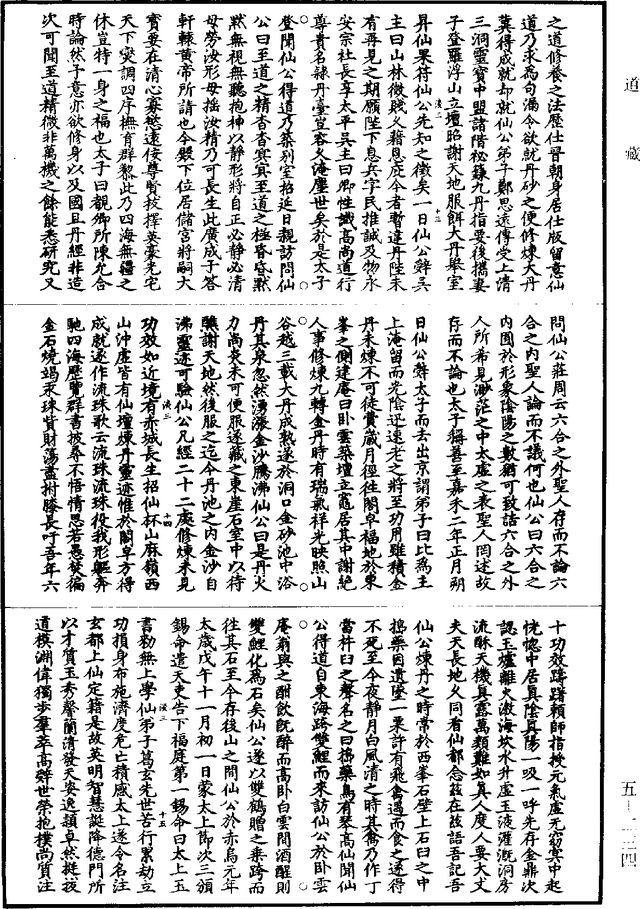 道藏
之道修養之法歷仕晉朝身居仕版留意仙
道乃求為句漏令欲就丹砂之便修煉大丹
冀得成就却就仙公弟子鄭思遠傳受上清
三洞靈寶中盟諸階秘籙九丹指要後携妻
子登羅浮山立壇昭謝天地服餌大丹舉室
昇仙果符仙公先知之徵矣一日仙公辭吳
主曰山林微賤乂藉恩庇今者暫違丹陛未
有再見之期願陛下息兵字民推誠及物永
安宗社長享太平吳主曰卿性識高尚道行
尊貴名隸丹臺豈容久淹塵世矣於是太子
登聞仙公得道乃築別室招延日親訪問仙
公曰至道之精杳杳冥冥至道之極昏昏默
默無視無聽抱神以靜形將自正必靜必清
毋勞汝形毋搖汝精乃可長生此廣成子答
軒轅黃帝所請也今殿下位居儲宮將嗣大
寶要在清心寡慾遠佞尊賢拔擇英豪光宅
天下燮調四序撫育群黎此乃四海無疆之
休豈特一身之福也太子曰觀卿所陳允合
時論然予意亦欲修身以及國且丹經非造
次可聞至道精微非萬機之餘能悉研究又
問仙公莊周云六合之外聖人存而不論六
合之內聖人論而不議何也仙公曰六合之
內囿於形象陰陽之數猶可致詰六合之外
人所希見渺茫之中太虛之表聖人罔述故
存而不論也太子稱善至嘉禾二年正月朔
日仙公辭太子而去出京謂弟子曰比為王
上淹留而光陰迅速老之將至功用雖積金
丹未煉不可徒費歲月徑往閤皂福地於東
峯之側建庵曰臥雲築壇立竈居其中謝絕
人事修煉九轉金丹時有瑞氣祥光映照山
谷越三載大丹成熟遂於洞口金砂池中浴
丹其泉忽然湧漲金沙騰沸仙公曰是丹火
力尚炎未可便服遂藏之東崖石室中以待
醮謝天地然後服之迄今丹池之內金沙自
沸靈迹可驗仙公凡經二十二處修煉未見
功效如近境有赤城長生招仙杯山麻嶺西
山沖虛皆有仙壇煉丹靈迹惟於閤皂方得
成就遂作流珠歌云流珠流珠役我形軀奔
馳四海歷覽群書披尋不悟情思若愚焚徧
金石燒竭汞珠貲財蕩盡拊膝長吁吾年六
十功效躊躇賴師指授元氣虛无窈冥中起
恍惚中居真陰真陽一吸一呼先存金鼎次
認玉爐離火激海坎水升虛玉液灌溉洞房
流酥天機真露萬類難如真人度人要大丈
夫天長地久同看仙都念茲在茲語吾記吾
仙公煉丹之時常於西峯石壁上石臼之中
搗藥因遺墜一粟許有飛禽過而食之遂得
不死至今夜靜月白風清之時其禽乃作丁
當杵臼之聲名之曰搗藥鳥有琴高仙聞仙
公得道自東海跨雙鯉而來訪仙公於臥雲
庵翁與之酣飲既醉而高臥白雲間酒醒則
雙鯉化為石矣仙公遂以雙鶴贈之乘跨而
往其石至今存後山之間仙公於赤烏元年
太歲戊午十一月初一日蒙太上節次三頒
錫命遣天吏告下福庭第一錫命曰太上玉
書勑無上學仙弟子葛玄先世苦行累劫立
功損身布施濟度危亡積感太上遂令名注
玄都上仙定籍是故英明智慧誕降德門所
以才質玉秀馨蘭清發天姿逸穎卓然挺拔
道模淵偉獨步羣萃高辭世榮抱樸尚質注
五—一三四